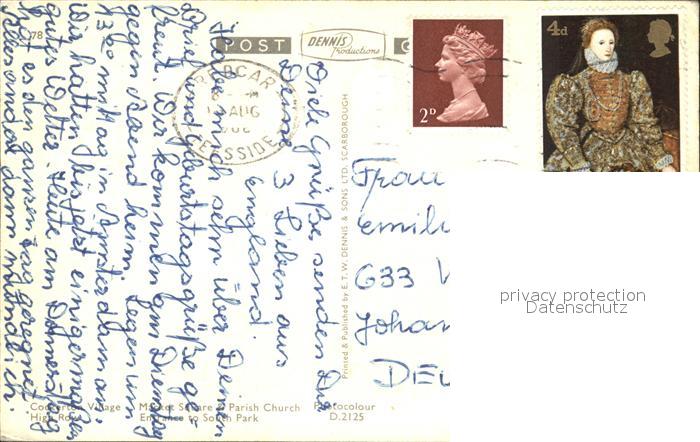 78
POST
DENNIS
Productions
C
REDCAR
AUG
TEESSIDE
2D
4d
Viele Grüße senden Dir
Deine 3 Lieben aus
England.
Habe mich sehr über Deinen
Brief und Geburtstagsgrüße ge-
freut. Wir kommen am Dienstag
gegen Abend heim. Legen um
13 00 mittag in Amsterdam an.
Wir hatten bis jetzt einigermaßen
gutes Wetter. Heute am Donnerstag
hat es den ganzen Tag geregnet.
Alles andere dann mündlich.
Printed & Published by E. T. W. DENNIS & SONS LTD. SCARBOROUGH
Frau
Emili
633 W
Johan
DEU
privacy protection
Datenschutz
Cockerton Village Market Square & Parish Church Photocolour
High Row Entrance to South Park D.2125